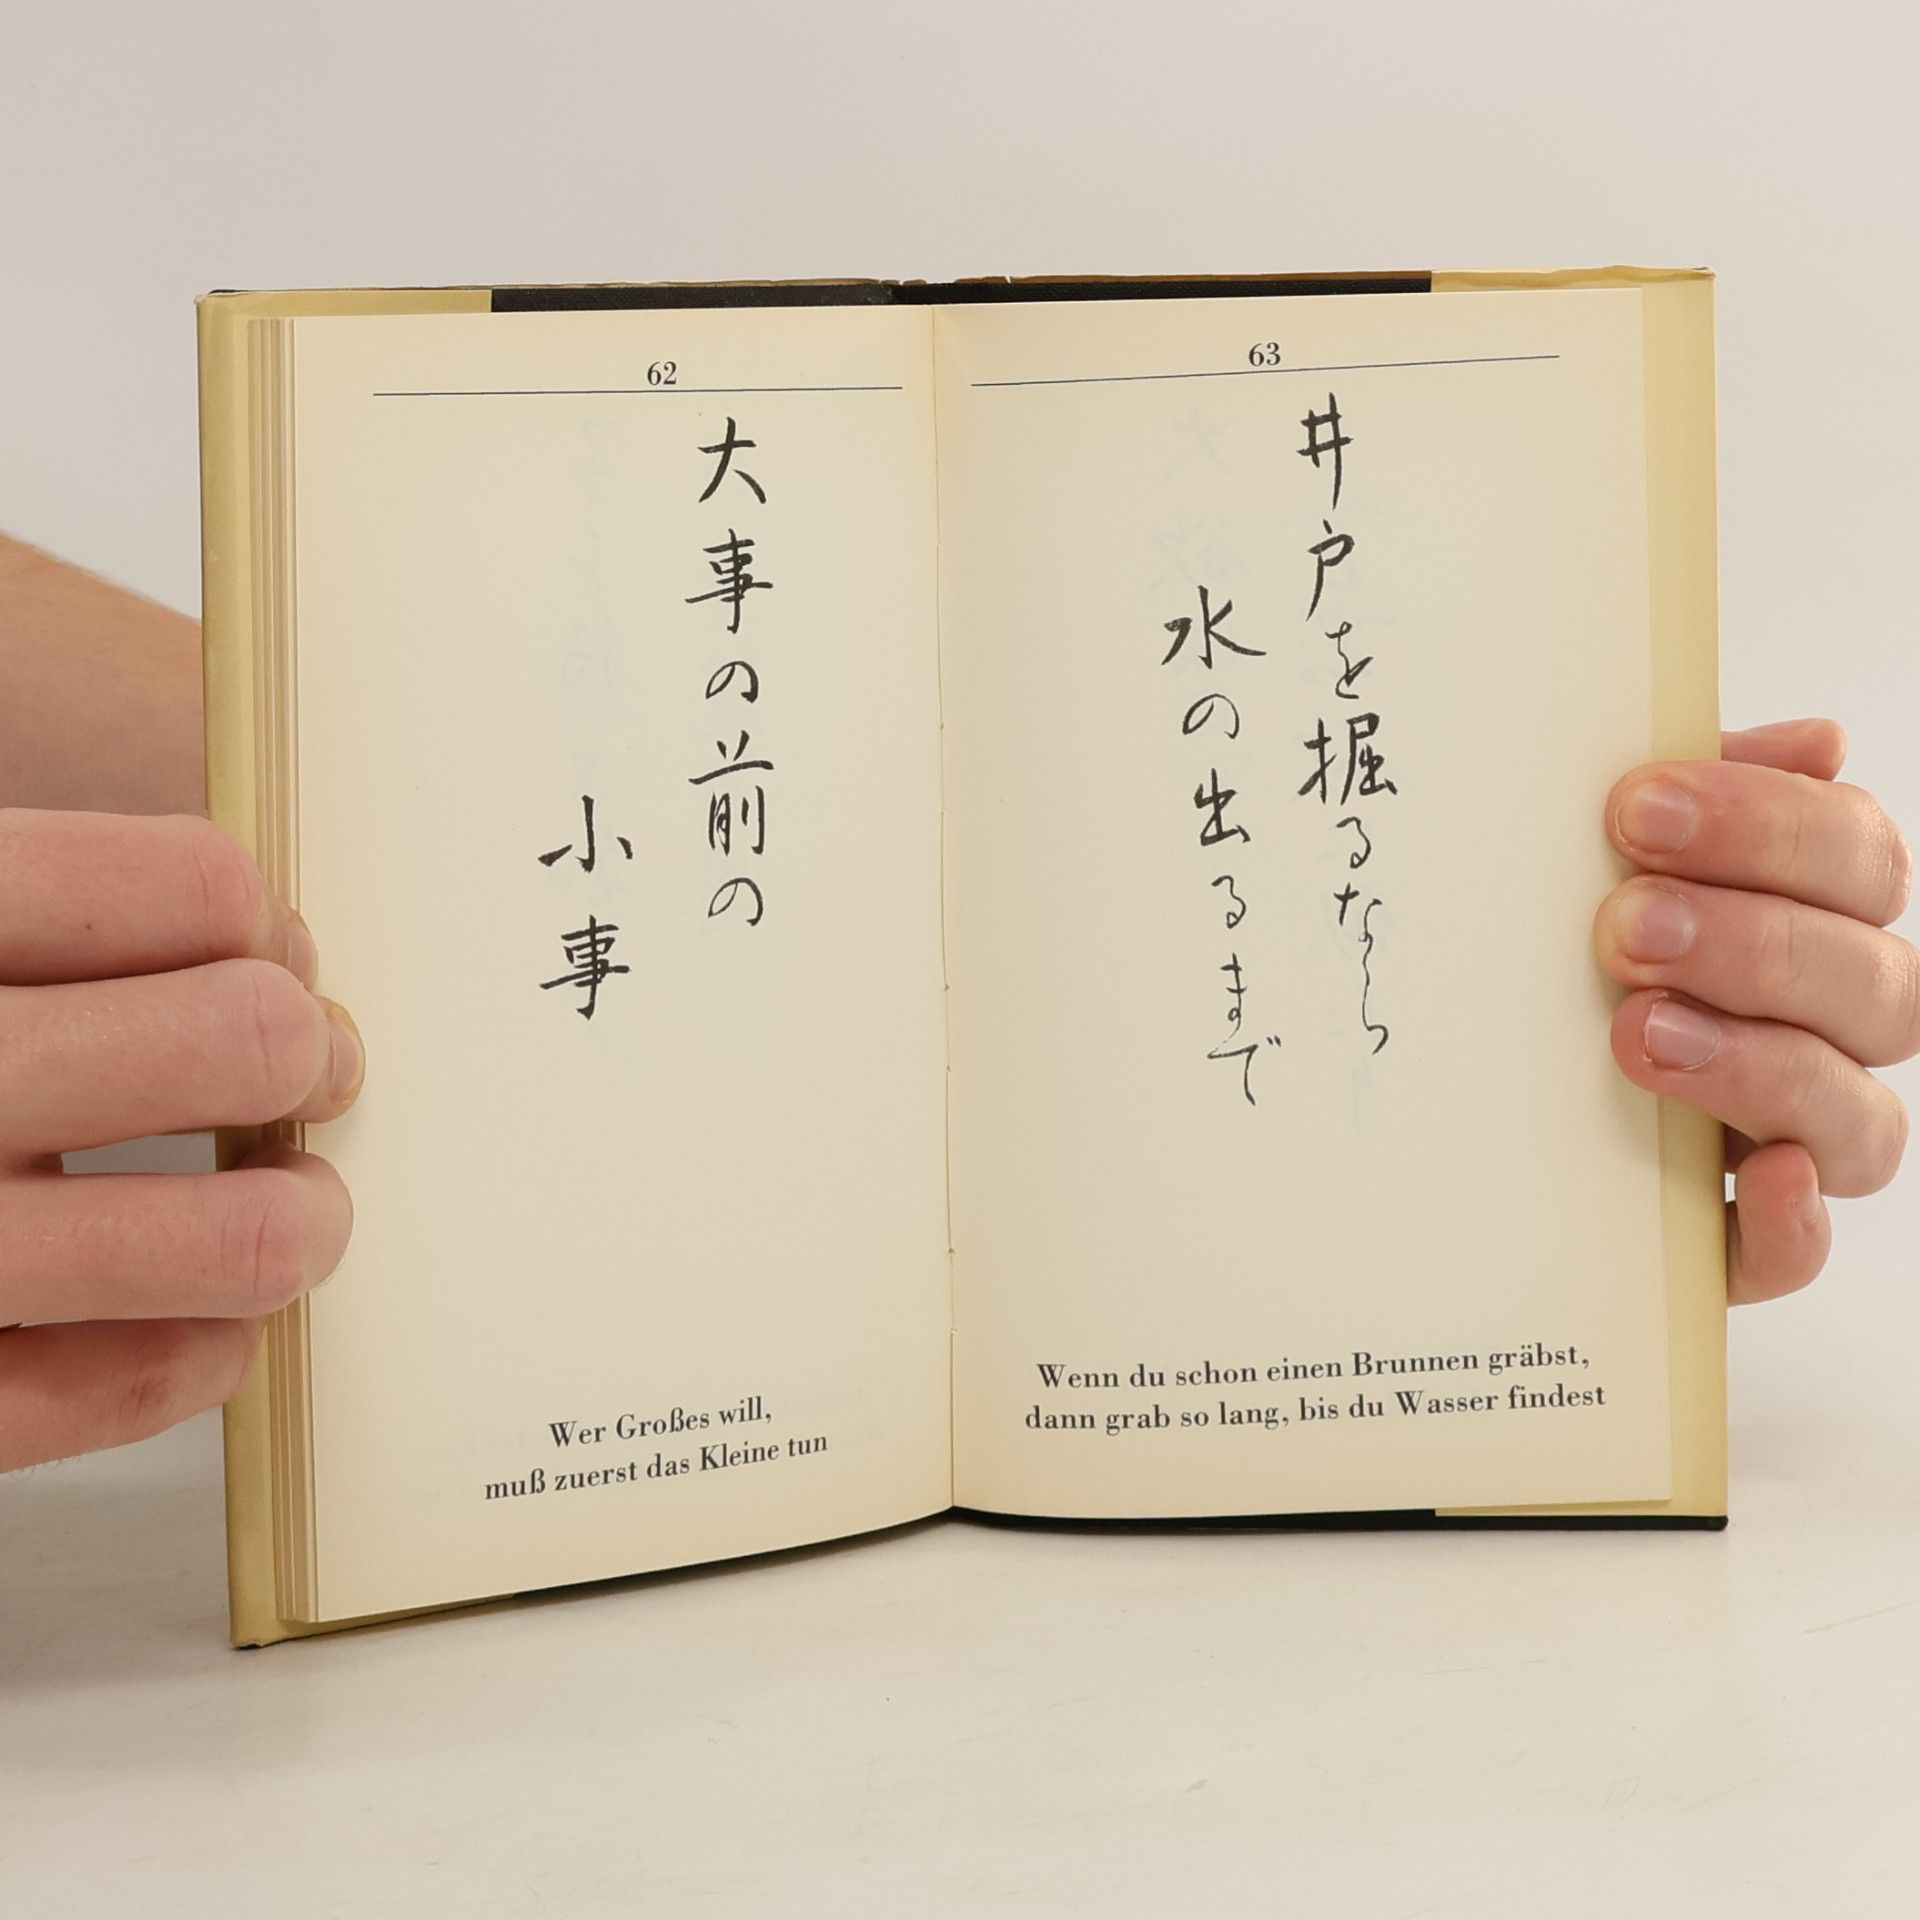 62
大事の前の
小事
Wer Großes will,
muß zuerst das Kleine tun
63
井戸を掘るなら
水の出るまで
Wenn du schon einen Brunnen gräbst,
dann grab so lang, bis du Wasser findest